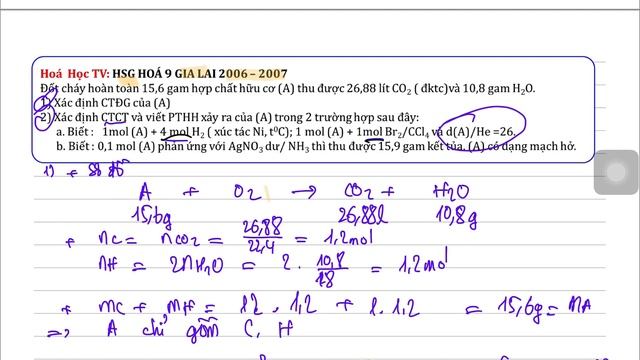 Hoá Học TV: HSG HOÁ 9 GIA LAI 2006 – 2007
Đốt cháy hoàn toàn 15,6 gam hợp chất hữu cơ (A) thu được 26,88 lít CO2 ( đktc)và 10,8 gam H2O.
1) Xác định CTĐG của (A)
2) Xác định CTCT và viết PTHH xảy ra của (A) trong 2 trường hợp sau đây:
a. Biết : 1mol (A) + 4 mol H2 ( xúc tác Ni, t0C); 1 mol (A) + 1mol Br2/CCl4 và d(A)/He =26.
b. Biết : 0,1 mol (A) phản ứng với AgNO3 dư/ NH3 thì thu được 15,9 gam kết tủa. (A) có dạng mạch hở.
1) + Sơ đồ
A + O2 → CO2 + H2O
15,6g 26,88l 10,8g
+ nC = nCO2 = 26,88/22,4 = 1,2mol
nH = 2nH2O = 2. 10,8/18 = 1,2mol
+ mC + mH = 12 . 1,2 + 1. 1,2 = 15,6g = mA
=> A chỉ gồm C, H